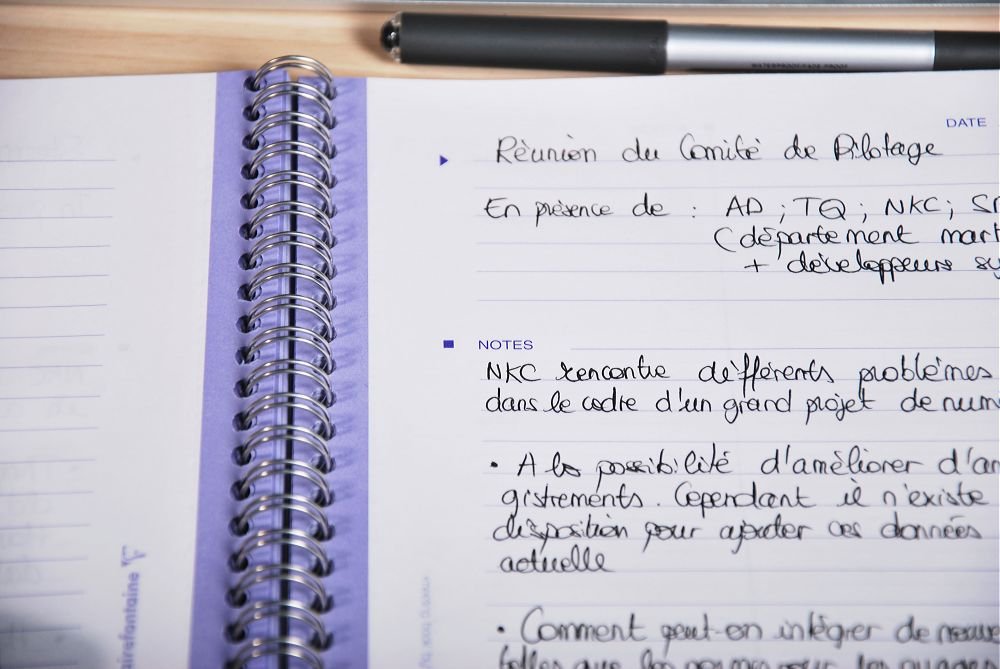 DATE
Réunion du Comité de Pilotage
En présence de : AD ; TQ ; NKC ;
(département
+ développeurs
NOTES
NKC rencontre différents problèmes
dans le cadre d'un grand projet de
• A la possibilité d'améliorer
gistrements. Cependant il n'existe
disposition pour ajouter ces données
actuelle
• Comment peut-on intégrer de
telles que les